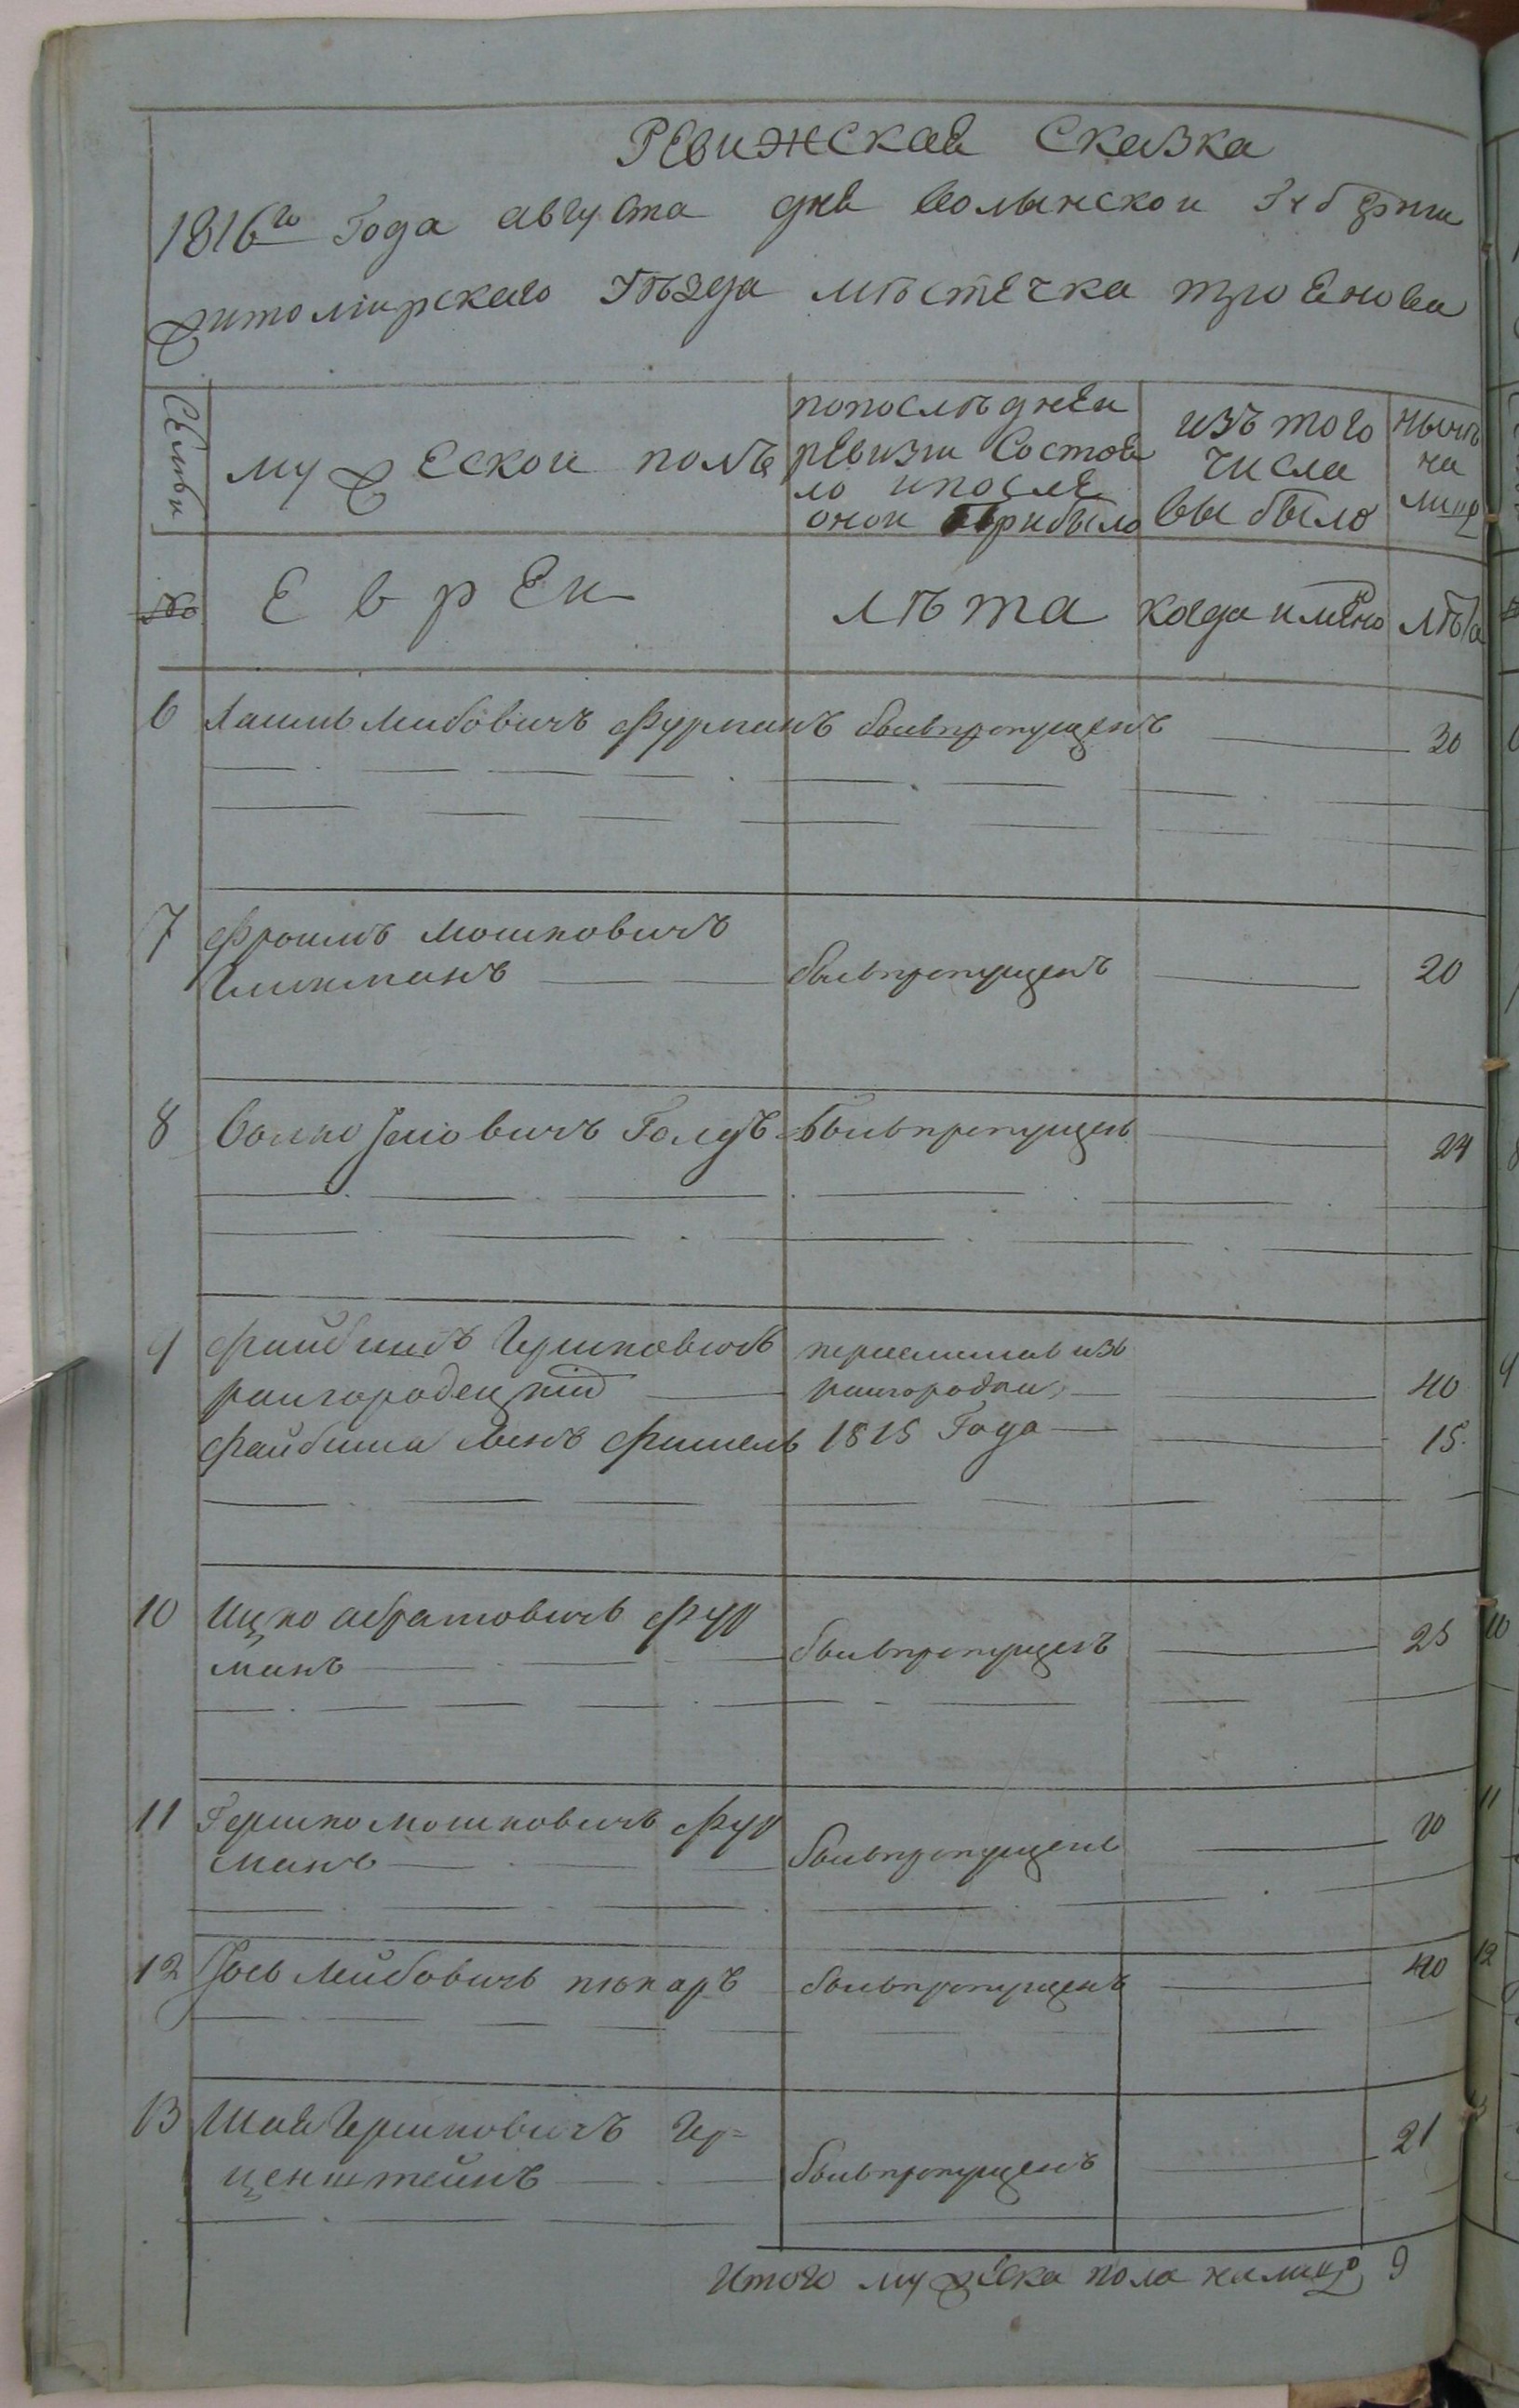 Ревижская Сказка
1816го Года августа дня волынской Губернии
житомирского уѣзда мѣстечка троянова
Семьи
мужеской полъ
попослѣдней
ревизии Состоя
ло ипосле
оной прибыло
изъ того
числа
выбыло
нынѣ
на
лицо
№
Евреи
лѣта
когда имено
лѣта
6 Лейбовичъ Фурманъ былъ пропущенъ 30
7 Фроимъ Мошковичъ
Гликманъ былъ пропущенъ 20
8 Волко Іосіовичъ Голдъ былъ пропущен 24
9 Файбишъ Гершковичъ переешелъ изъ
райгородецкій райгородка 40
Файбиша сынъ Фишель 1815 Года 15
10 Ицко абрамовичъ Фур
манъ былъ пропущенъ 25
11 Гершко мошковичъ Фур
манъ былъ пропущенъ 20
12 Іось Лейбовичъ пѣкаръ былъ пропущенъ 40
13 Шая Гершковичъ Гер=
ценштейнъ былъ пропущенъ 21
Итого мужеска пола налицо 9